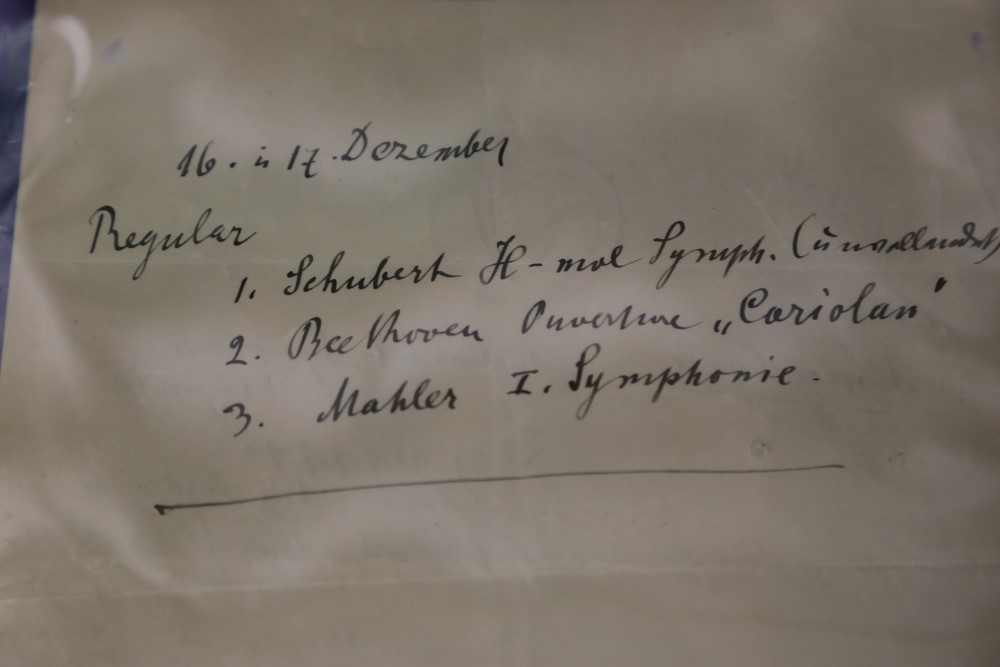 16. u 17. Dezember
Regular
1. Schubert H-mol Symph. (unvollendet)
2. Beethoven Ouverture „Coriolan"
3. Mahler I. Symphonie.